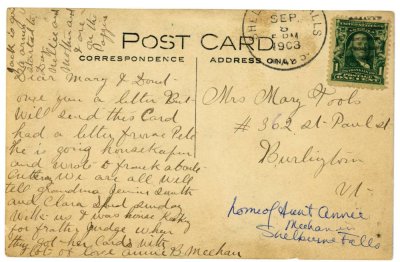 Jack is go
to
started
Dear
Mellie and
Mother and
I are
on the
Piazza
POST CARD
CORRESPONDENCE
ADDRESS ONLY
SHEL FALLS
SEP.
8
PM
1903
Dear Mary & Don
owe you a letter But
Will send this Card
had a letter from
he is going housekeeping
and wrote to Frank about
We are all Well
tell grandma Jennie Smith
and Clara Sunday
With us I was house keeping
for Fratty Judge when
they got her Cards with
lot of love Annie B. Meehan
Mrs Mary Tools
# 362 St-Paul St
Burlington
Vt-
Home of Aunt Annie
Meehan in
Shelburne Falls